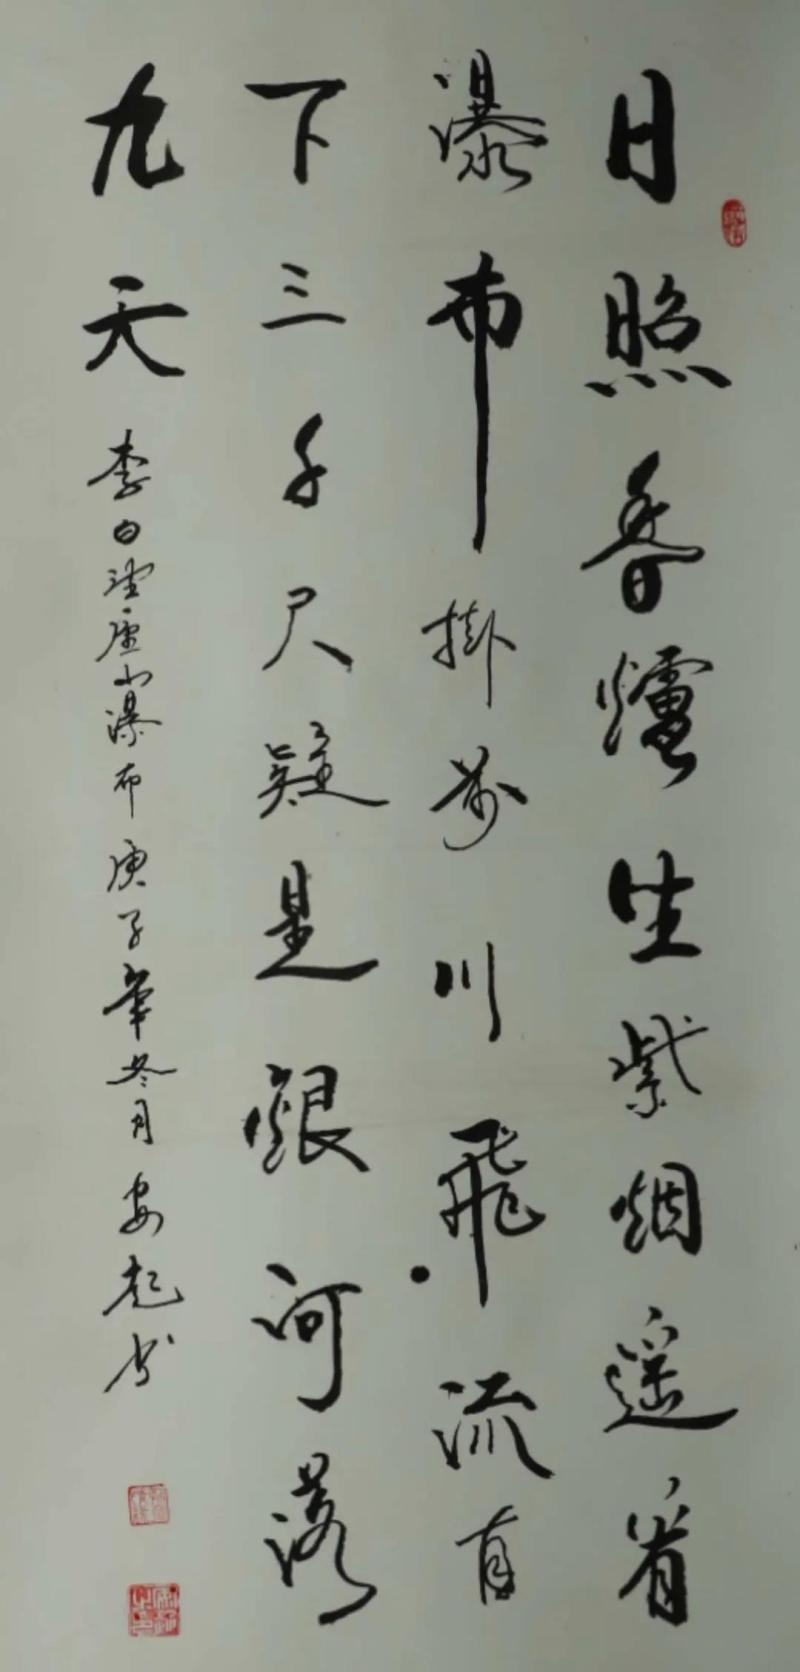 日照香爐生紫烟遥看
瀑布掛前川飛流直
下三千尺疑是銀河落
九天 李白望庐山瀑布 庚子年冬月 安书